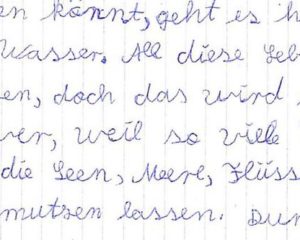 en könnt, geht es h
Wasser. All diese Leb
en, doch das wird
ver, weil so viele
die Seen, Meere, Flüss
mutzen lassen. Dur